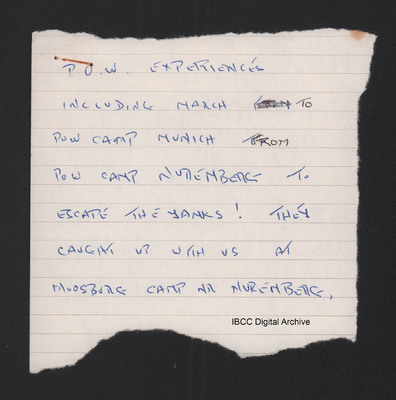 P.O.W. EXPERIENCES
INCLUDING MARCH TO
POW CAMP MUNICH FROM
POW CAMP NUREMBERG TO
ESCAPE THE YANKS! THEY
CAUGHT UP WITH US AT
MOOSBURG CAMP NR NUREMBERG.
IBCC Digital Archive